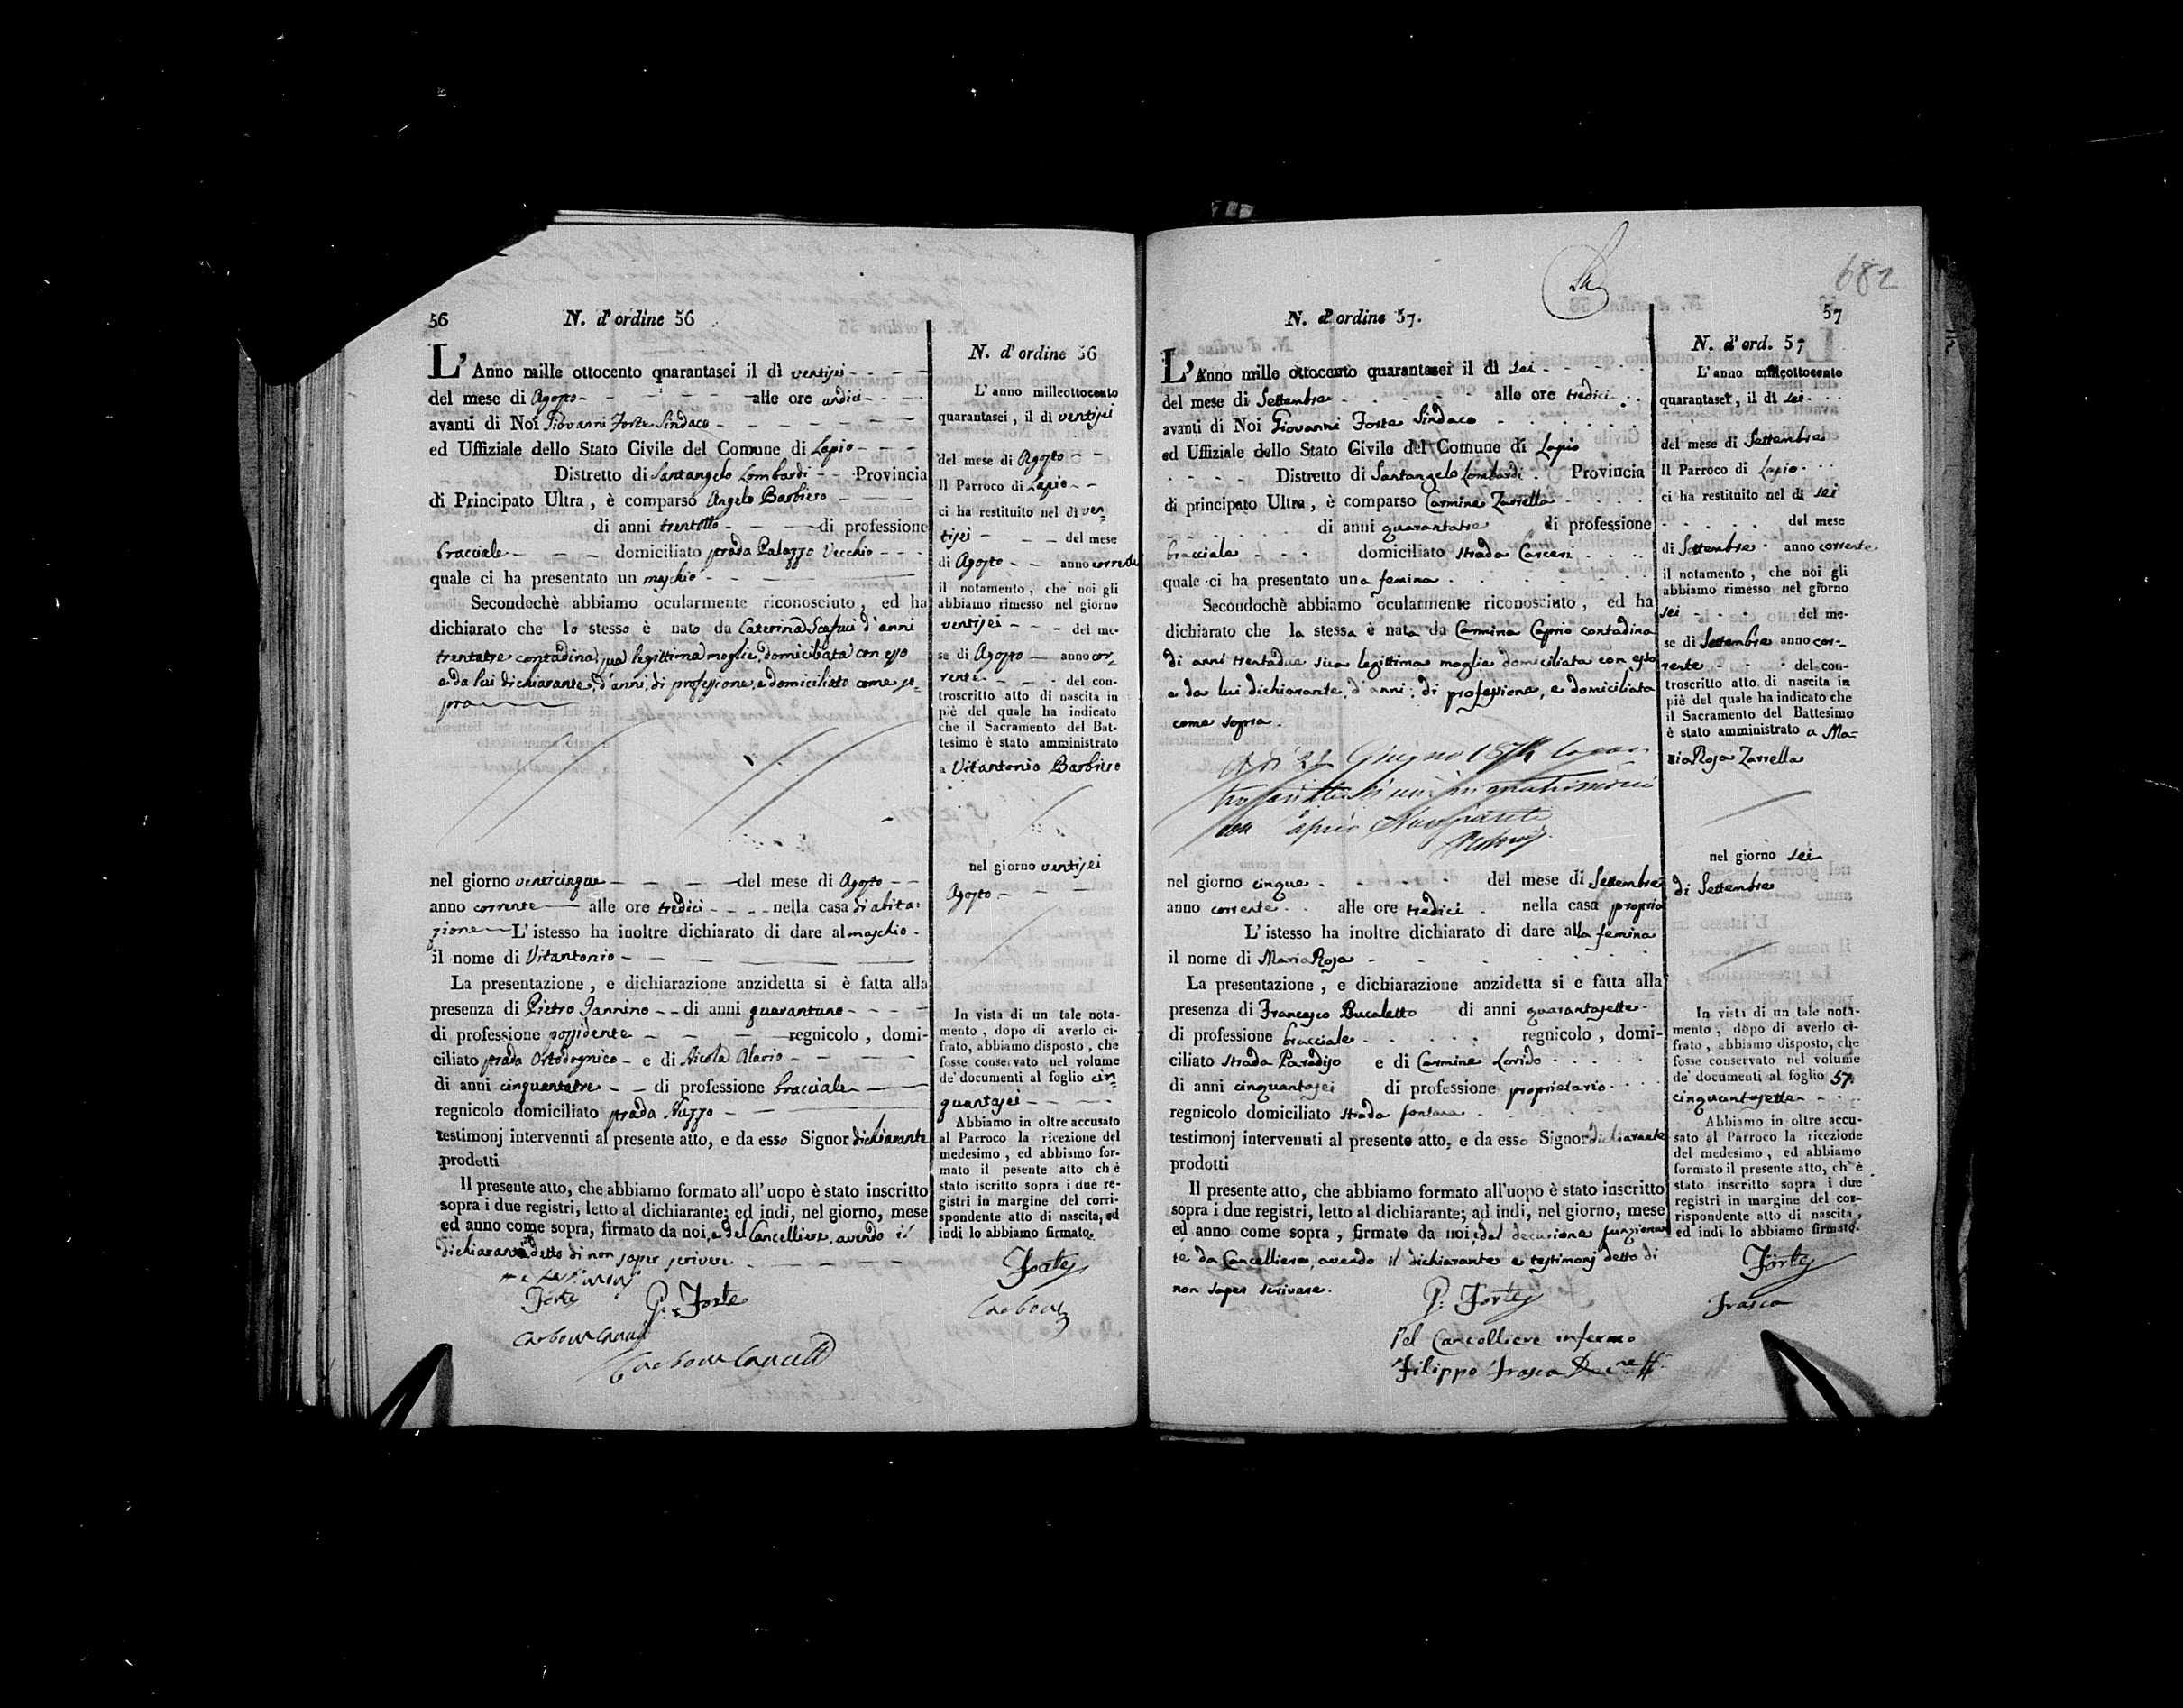 56
N. d'ordine 56
L'Anno mille ottocento quarantasei il dì ventisei
del mese di Agosto alle ore undici
avanti di Noi Giovanni Forte Sindaco
ed Uffiziale dello Stato Civile del Comune di Lapio
Distretto di Santangelo Lombardi Provincia
di Principato Ultra, è comparso Angelo Barbiero
di anni trentotto di professione
bracciale domiciliato strada Palazzo Vecchio
quale ci ha presentato un maschio
Secondochè abbiamo ocularmente riconosciuto, ed ha
dichiarato che lo stesso è nato da Caterina d'anni
trentatre contadina, sua legittima moglie, domiciliata con esso
e da lui dichiarante, d'anni, di professione, e domiciliato come so-
pra
nel giorno venticinque del mese di Agosto
anno corrente alle ore tredici nella casa di abita-
zione L'istesso ha inoltre dichiarato di dare al maschio
il nome di Vitantonio
La presentazione, e dichiarazione anzidetta si è fatta alla
presenza di Pietro Iannino di anni quarantuno
di professione possidente regnicolo, domi-
ciliato strada Ortodognico e di Nicola Alario
di anni cinquantatre di professione bracciale
regnicolo domiciliato strada Nuzzo
testimonj intervenuti al presente atto, e da esso Signor dichiarante
prodotti
Il presente atto, che abbiamo formato all'uopo è stato inscritto
sopra i due registri, letto al dichiarante; ed indi, nel giorno, mese
ed anno come sopra, firmato da noi, e del Cancelliere, avendo il
dichiarante detto di non saper scrivere
Forte
G: Forte
N. d'ordine 56
L'anno milleottocento
quarantasei, il dì ventisei
del mese di Agosto
Il Parroco di Lapio
ci ha restituito nel dì ven-
tisei del mese
di Agosto anno corrente
il notamento, che noi gli
abbiamo rimesso nel giorno
ventisei del me-
se di Agosto anno cor-
rente del con-
troscritto atto di nascita in
piè del quale ha indicato
che il Sacramento del Bat-
tesimo è stato amministrato
a Vitantonio Barbiero
nel giorno ventisei
Agosto
In vista di un tale nota-
mento, dopo di averlo ci-
frato, abbiamo disposto, che
fosse conservato nel volume
de' documenti al foglio cin-
quantasei
Abbiamo in oltre accusato
al Parroco la ricezione del
medesimo, ed abbiamo for-
mato il pesente atto ch è
stato iscritto sopra i due re-
gistri in margine del corri-
spondente atto di nascita, ed
indi lo abbiamo firmato.
Forte
682
57
N. d'ordine 57.
L'Anno mille ottocento quarantasei il dì sei
del mese di Settembre alle ore tredici
avanti di Noi Giovanni Forte Sindaco
ed Uffiziale dello Stato Civile del Comune di Lapio
Distretto di Santangelo Lombardi Provincia
di principato Ultra, è comparso Carmine Zarrella
di anni quarantatre di professione
bracciale domiciliato Strada Carceri
quale ci ha presentato una femina
Secondochè abbiamo ocularmente riconosciuto, ed ha
dichiarato che la stessa è nata da Carmina Caprio contadina
di anni trentadue sua legittima moglie domiciliata con esso
e da lui dichiarante, d'anni, di professione, e domiciliata
come sopra.
Giugno
nel giorno cinque del mese di Settembre
anno corrente alle ore tredici nella casa propria
L'istesso ha inoltre dichiarato di dare alla femina
il nome di Maria Rosa
La presentazione, e dichiarazione anzidetta si e fatta alla
presenza di Francesco Bucaletto di anni quarantasette
di professione bracciale regnicolo, domi-
ciliato Strada Paradiso e di Carmine Lorido
di anni cinquantasei di professione proprietario
regnicolo domiciliato Strada fontana
testimonj intervenuti al presente atto, e da esso Signor dichiarante
prodotti
Il presente atto, che abbiamo formato all'uopo è stato inscritto
sopra i due registri, letto al dichiarante; ad indi, nel giorno, mese
ed anno come sopra, firmato da noi, e dal decurione funzionan
te da Cancelliere, avendo il dichiarante e testimonj detto di
non saper scrivere.
G: Forte
Pel Cancelliere infermo
Filippo Frasca
N. d'ord. 57
L'anno milleottocento
quarantasei, il dì sei
del mese di Settembre
Il Parroco di Lapio
ci ha restituito nel dì sei
del mese
di Settembre anno corrente
il notamento, che noi gli
abbiamo rimesso nel giorno
sei del me-
se di Settembre anno cor-
rente del con-
troscritto atto di nascita in
piè del quale ha indicato che
il Sacramento del Battesimo
è stato amministrato a Ma-
ria Rosa Zarrella
nel giorno sei
di Settembre
In vista di un tale nota-
mento, dopo di averlo ci-
frato, abbiamo disposto, che
fosse conservato nel volume
de' documenti al foglio 57.
cinquantasette
Abbiamo in oltre accu-
sato al Parroco la ricezione
del medesimo, ed abbiamo
formato il presente atto, ch'è
stato inscritto sopra i due
registri in margine del cor-
rispondente atto di nascita,
ed indi lo abbiamo firmato.
Forte
Frasca